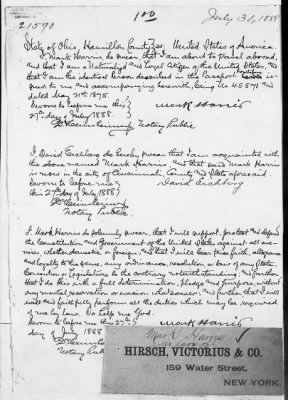 100
July 30, 1888
21590
State of Ohio, Hamilton County ss: United States of America.
I Mark Harris do swear, that I am about to travel abroad,
and that I am a Naturalized and Loyal Citizen of the United States, and
that I am the identical person described in the Passport
issued to me and accompanying herewith, being No 45571 and
dated May 21st 1875.
Sworn to before me this
27th day of July 1888.
Mark Harris
Notary Public
I David Eichberg do hereby swear that I am acquainted with
the above named Mark Harris, and that said Mark Harris
is now in the city of Cincinnati, County and State aforesaid.
Sworn to before me
this 27th day of July 1888
David Eichberg
Notary Public.
I Mark Harris do solemnly swear, that I will support, protect and defend
the Constitution and Government of the United States against all ene-
mies, whether domestic or foreign, and that I will bear true faith, allegiance
and loyalty to the same, any ordinance, resolution or law of any State,
Convention or Legislature to the contrary notwithstanding, and further
that I do this with a full determination, pledge and purpose, without
any mental reservation or evasion whatsoever, and further that I will
well and faithfully perform all the duties which may be required
of me by law. So help me God.
Sworn to before me this 27th
day of July 1888
Mark Harris
Notary Public
Mark Harris
HIRSCH, VICTORIUS & CO.
159 Water Street.
NEW YORK.